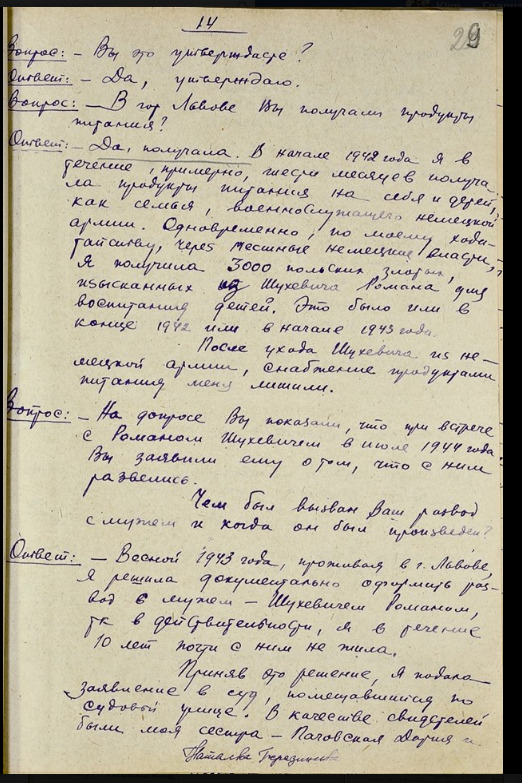 14
29
Вопрос: - Вы это утверждаете?
Ответ: - Да, утверждаю.
Вопрос: - В гор. Львове Вы получали продукты
питания?
Ответ: - Да, получала. В начале 1942 года я в
течение, примерно, шести месяцев получа-
ла продукты питания на себя и детей,
как семья, военнослужащего немецкой
армии. Одновременно, по моему хода-
тайству, через местные немецкие власти,
я получила 3000 польских злотых,
взысканных из Шухевича Романа, для
воспитания детей. Это было или в
конце 1942 или в начале 1943 года.
После ухода Шухевича из не-
мецкой армии, снабжение продуктами
питания меня лишили.
Вопрос: - На допросе Вы показали, что при встрече
с Романом Шухевичем в июле 1944 года
Вы заявили ему о том, что с ним
развелись.
Чем был вызван Ваш развод
с мужем и когда он был произведен?
Ответ: - Весной 1943 года, проживая в г. Львове,
я решила документально оформить раз-
вод с мужем - Шухевичем Романом,
тк в действительности, я в течение
10 лет почти с ним не жила.
Приняв это решение, я подала
заявление в суд, помещавшийся по
судовой улице. В качестве свидетелей
были моя сестра - Пачовская Дария и
Наталка Березинская